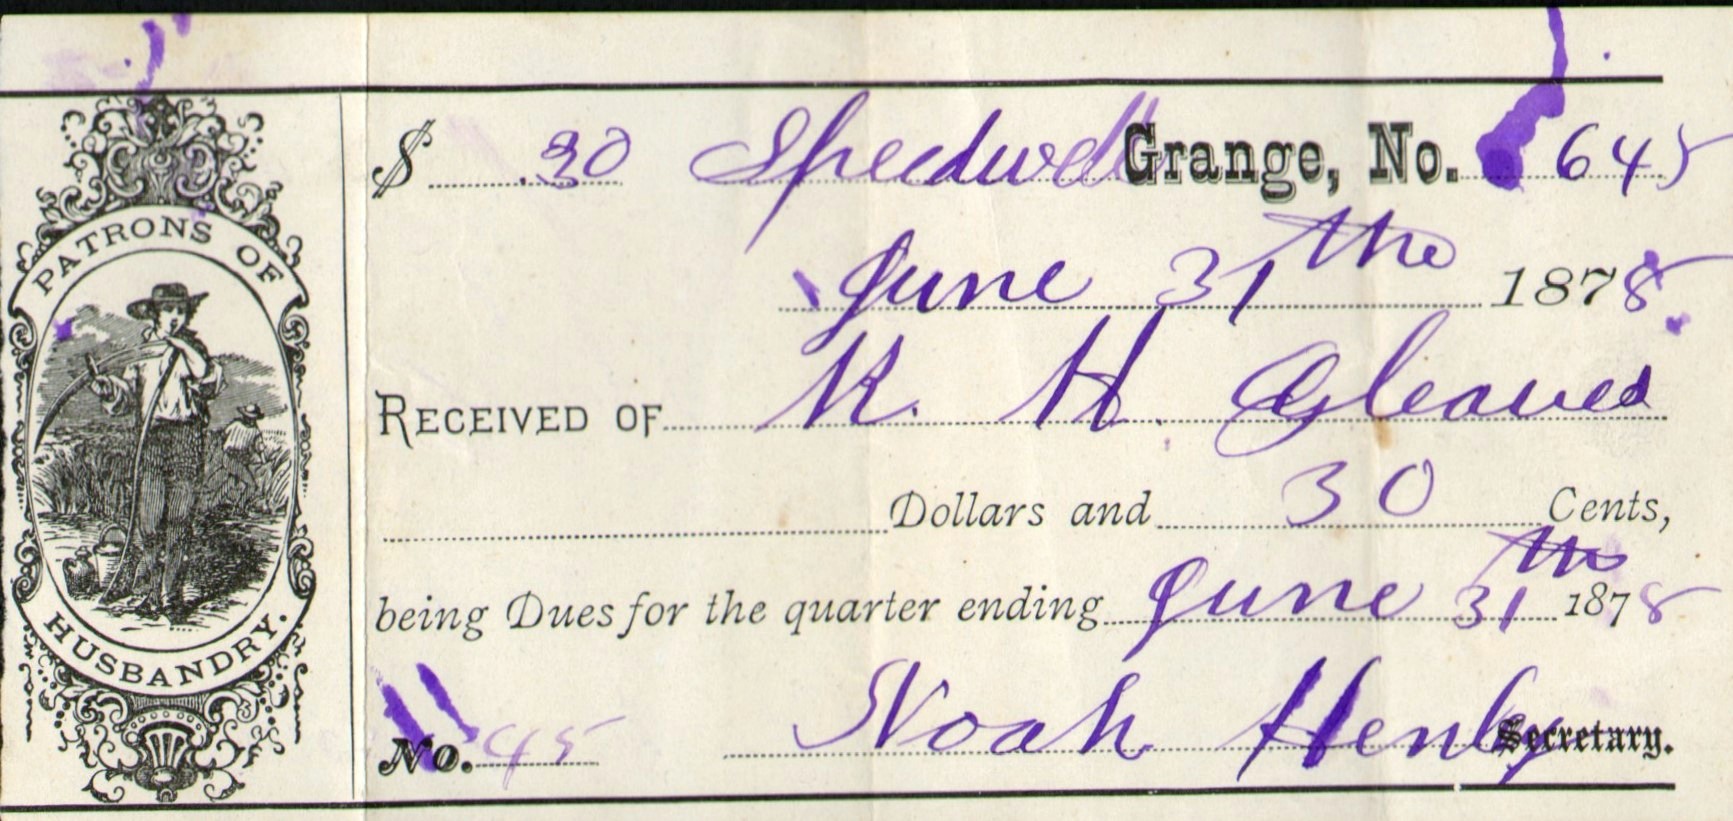 PATRONS OF
HUSBANDRY.
$ .30 Spedwell Grange, No. 645
June 31 the 1878
RECEIVED OF K. H. Gleaves
Dollars and 30 Cents,
being Dues for the quarter ending June 31 the 1878
No. 45 Noah Henly Secretary.